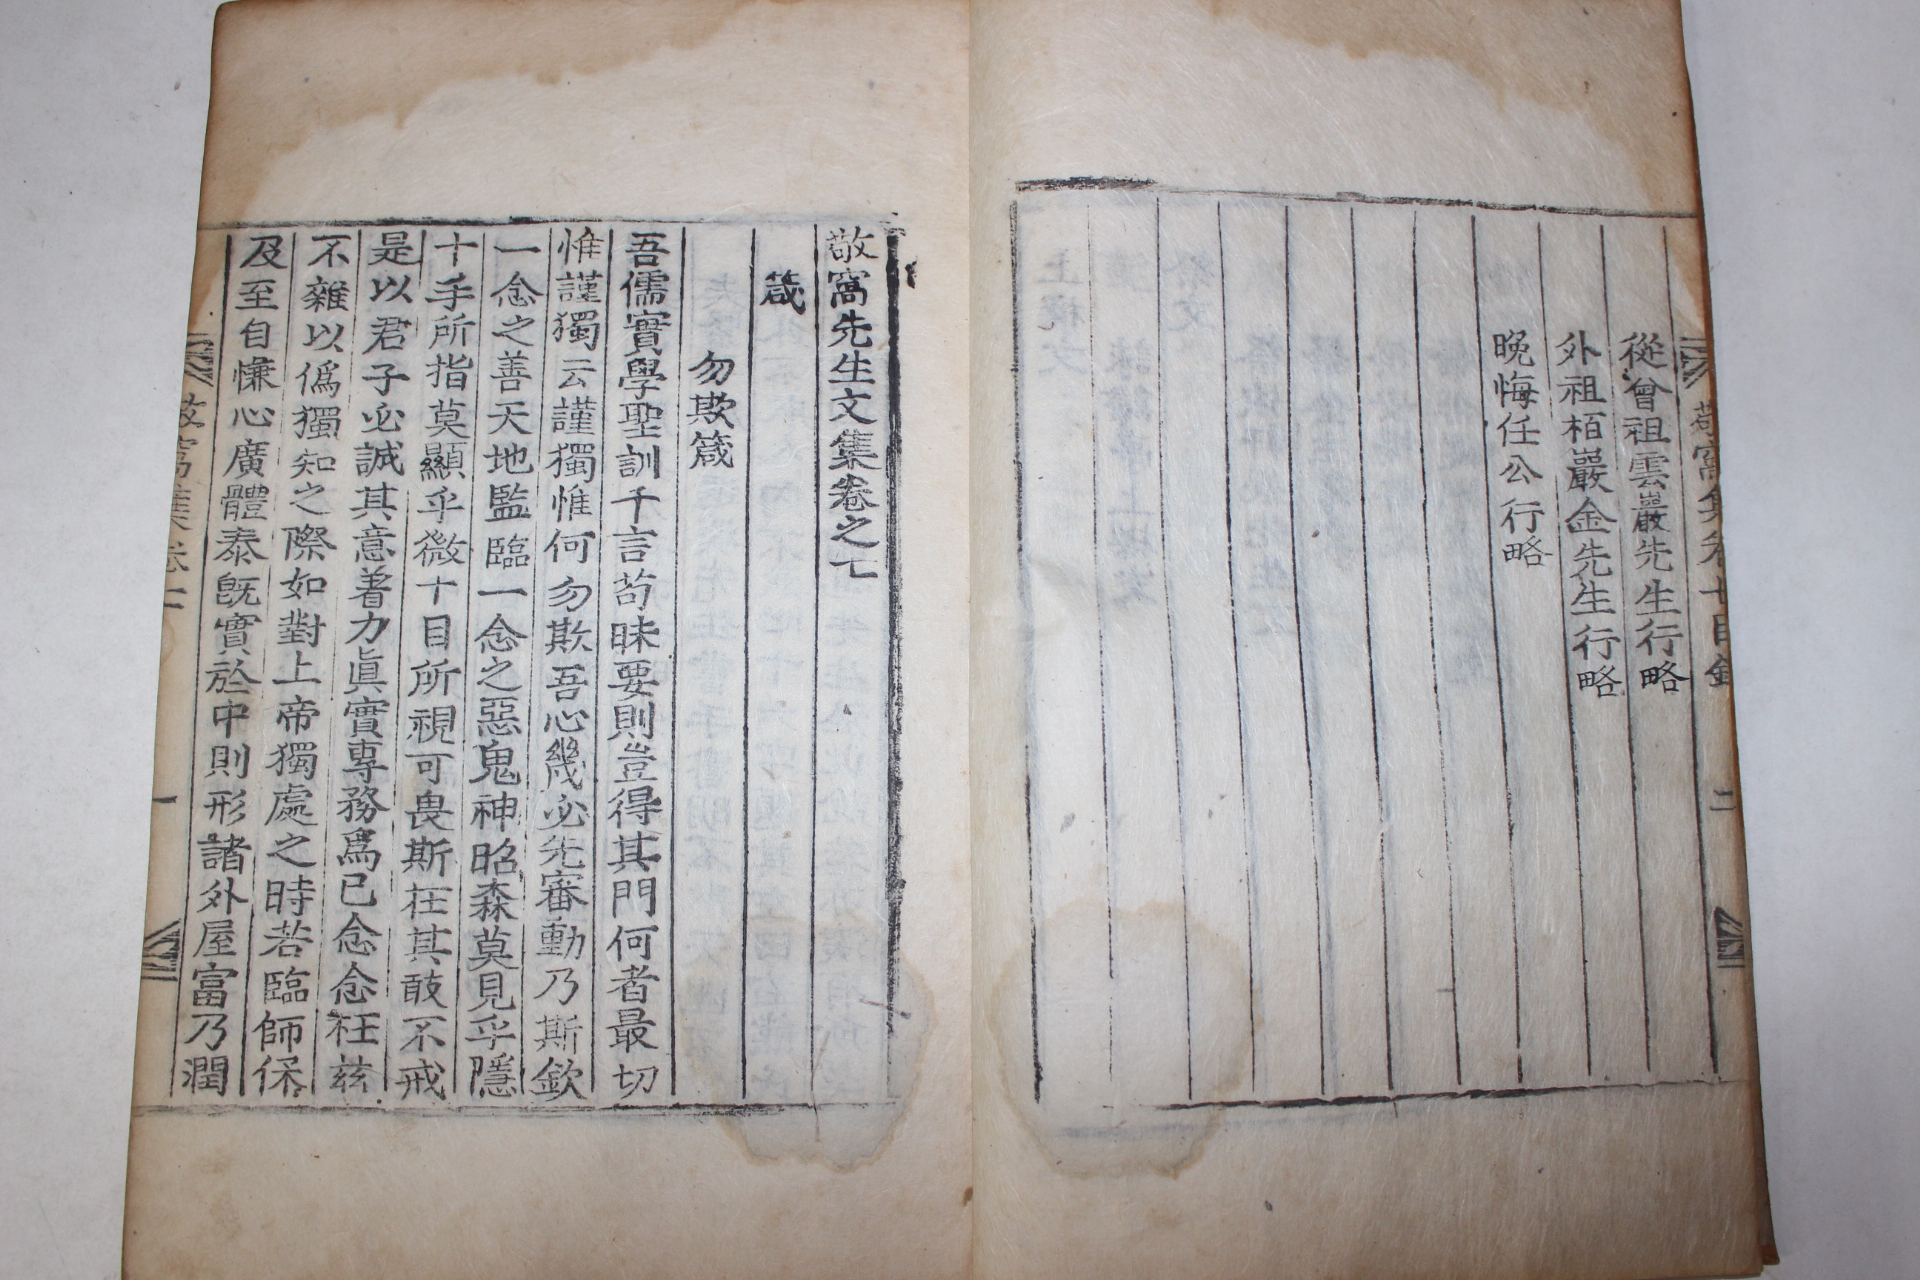 從曾祖雲巖先生行略
外祖栢巖金先生行略
晩悔任公行略
敬窩集卷七目錄 二
敬窩先生文集卷之七
箴
勿欺箴
吾儒實學聖訓千言苟昧要則豈得其門何者最切
惟謹獨云謹獨惟何勿欺吾心幾必先審動乃斯欽
一念之善天地監臨一念之惡鬼神昭森莫見乎隱
十手所指莫顯乎微十目所視可畏斯在其敢不戒
是以君子必誠其意着力眞實專務爲已念念在玆
不雜以僞獨知之際如對上帝獨處之時若臨師保
及至自慊心廣體泰旣實於中則形諸外屋富乃潤
敬窩集卷七 一